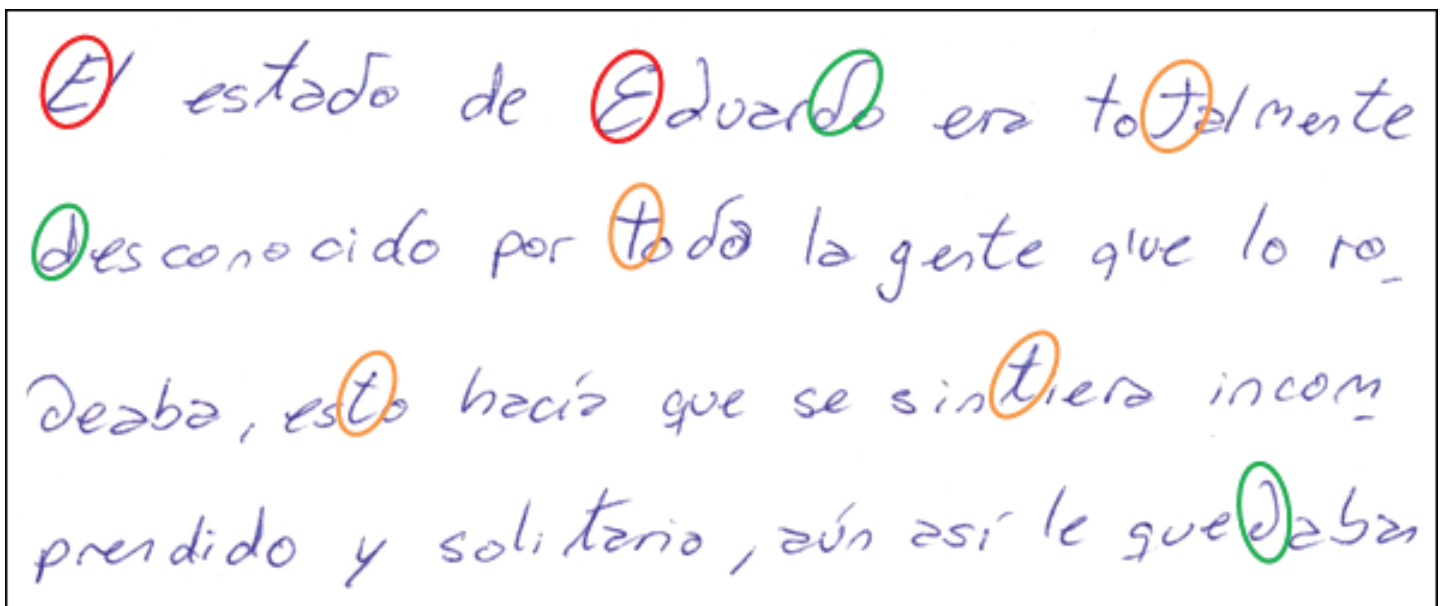 El estado de Eduardo era totalmente
desconocido por toda la gente que lo ro_
deaba, esto hacía que se sintiera incom_
prendido y solitario, aún así le quedaban